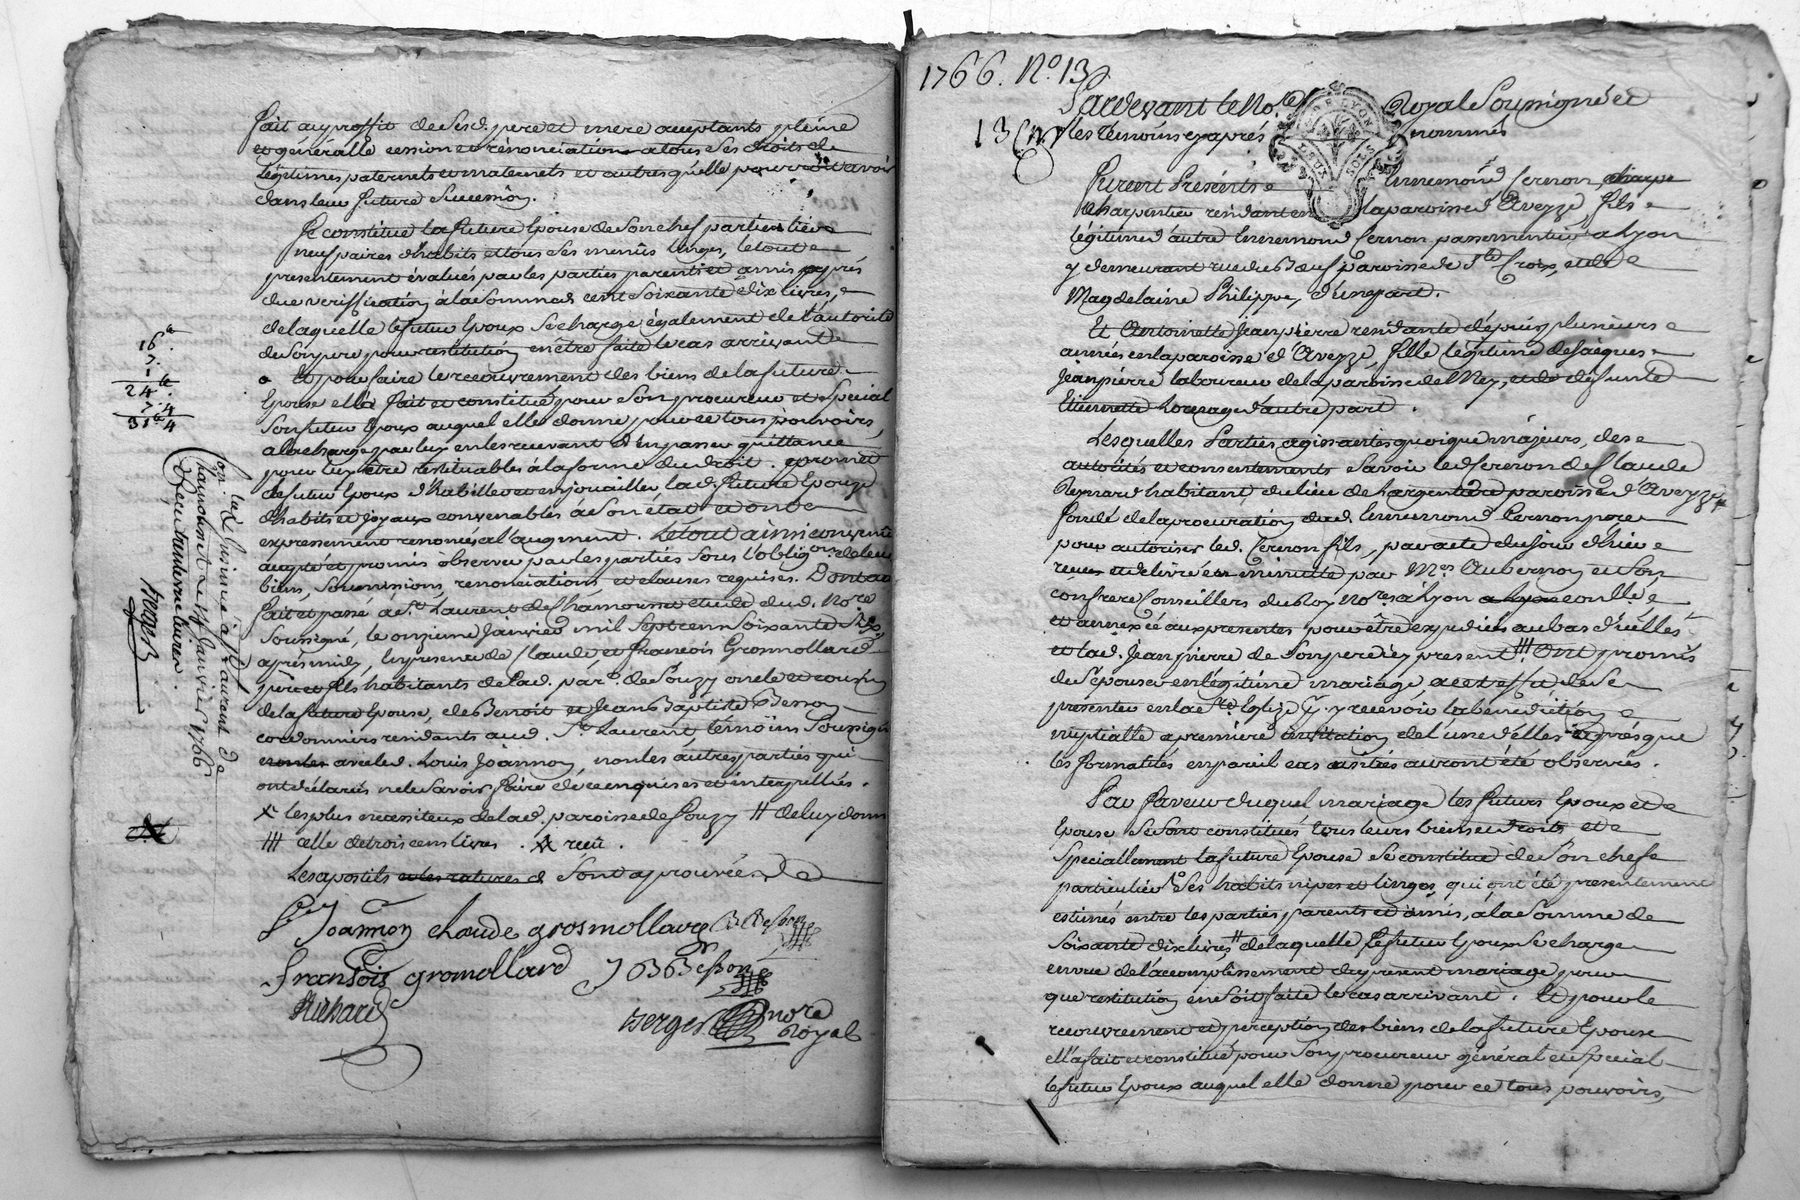 fait au proffit de Sesd. pere et mere acceptants pleine
et généralle cession et rénonciation a tous Ses droits de
Légitimes paternels et maternels et autres qu'elle pourroit avoir
dans leur future Succession.
Se constitue la future Epouse de Son chef particulier
neuf paires d'habits et tous Ses menus linges, le tout
presentement évalués par les parties parents et amis après
due veriffication à la Somme de cent Soixante dix livres,
de laquelle le futur Epoux Se charge également de l'autorité
de Son pere pour restitution en être faite le cas arrivant
Et pour faire le recouvrement des biens de la future
Epouse ella fait et constitué pour Son procureur et Spécial
Son futur Epoux auquel elle donne pour ce tous pouvoirs,
a la charge par luy en les recevant d'en passer quittance
pour luy être restituables à la forme du droit. promet
le futur Epoux d'habiller et enjoailler lad. future Epouze
d'habits et joyaux convenables a Son état et ont
expressement renoncés al'augment. Le tout ainsi convenu
accepté et promis observer par les parties Sous l'oblig.on de leurs
biens, Soumissions, renonciations, et clauses requises. Dont acte
fait et passé à S.t Laurent de Chamousset etude dud. No.re
Soussigné, le onzieme Janvier mil Sept cent Soixante Six
après midy, en presence de Claude et françois Gromollard
pere et fils habitants de lad. par. de Souzy oncle et cousin
de la future Epouse, de Benoit et Jean Baptiste Besson
cordonniers residants aud. St Laurent, témoins Soussignés
avec led. Louis Joannon, non les autres parties qui
ont déclarés ne le Savoir faire de ce enquises et interpellés.
X les plus necessiteux de lad. paroisse de Souzy # de luy donner
celle de trois cens livres. reçu.
Les apostils et les ratures Sont aprouvées
L Joannon claude grosmollard B Besson
fransois gromollard J B Besson
Richard
Berger nore
Royal
16
7.
1
24
7.4
31 4
a St Laurent de
chamousset Le Janvier 1766
Berger
1766. No. 13
13
Pardevant le No.re Royal Soussigné et
les temoins cy après nommés
GEN. DE LYON
DEUX SOLS
Furent Présents Ennemond Cernon
charpentier residant en la paroisse d'Aveyze, fils
légitime d'autre Ennemond Cernon passementier a Lyon
y demeurant rue du Boeuf paroisse de Ste Croix, et de
Magdelaine Philippe, d'une part.
Et Antoinette Jeanpierre residante dépuis plusieurs
années en la paroisse d'Aveyze, fille légitime de Jacques
Jeanpierre laboureur de la paroisse de Mey, et de défunte
Etiennette d'autre part.
Lesquelles Parties agissantes quoique majeurs, des
autorités et consentements Savoir led Cernon de Claude
Reynard habitant du lieu de Largentiere paroisse d'Aveyze
fondé de la procuration dud. Ennemond Cernon pere
pour autoriser led. Cernon fils, par acte du jour d'hier
reçue et délivrée en minutte par Mes. Aubernon et Son
confrere Conseillers du Roy Nores. à Lyon
et annexée aux presentes pour être expediée au bas d'icelles
et lad. Jeanpierre de Son pere icy present ont promis
de S'épouser en légitime mariage, a cet effet de Se
presenter en la Ste. Eglize p.r y recevoir la bénédiction
nuptialle a première invitation de l'une d'elles après que
les formalités en pareil cas usitées auront été observées.
En faveur duquel mariage les futurs Epoux et
Epouse Se Sont constitués tous leurs biens et droits et
Spécialement la future Epouse Se constitue de Son chef
particulier Ses habits nipes et linges, qui ont été presentement
estimés entre les parties parents et amis, à la Somme de
Soixante dix livres, de laquelle le futur Epoux Se charge
en vue de l'acomplissement du present mariage pour
que restitution en Soit faite le cas arrivant. Et pour le
recouvrement et perception des biens de la future Epouse
ella fait et constitué pour Son procureur général et Spécial
le futur Epoux auquel elle donne pour ce tous pouvoirs,